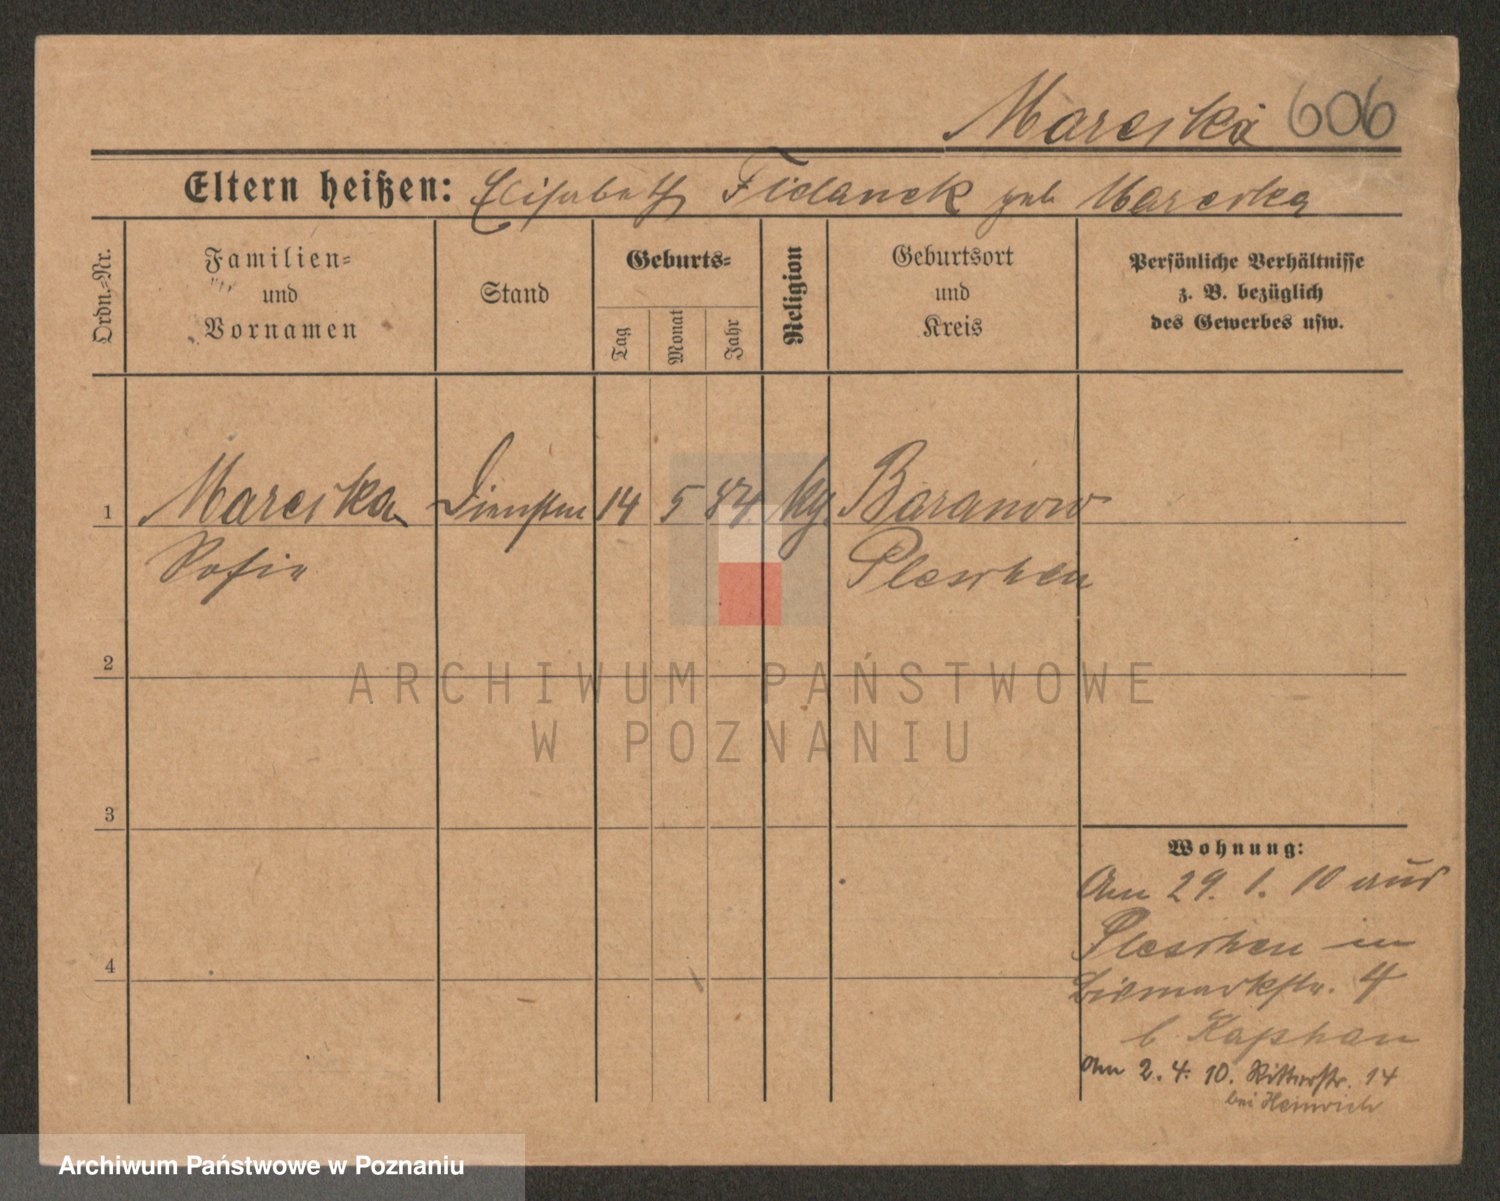 Marciska 606
Eltern heißen: Elisabeth Fidanek geb Marciska
Ordn.-Nr.
Familien=
und
Vornamen
Stand
Geburts=
Tag
Monat
Jahr
Religion
Geburtsort
und
Kreis
Persönliche Verhältnisse
z. B. bezüglich
des Gewerbes usw.
1 Marciska 14 5 kg. Baranow
Sofie Pleschen
2
ARCHIWUM PAŃSTWOWE
W POZNANIU
3
Wohnung:
Am 29. 1. 10 aus
Pleschen in
4
Bismarckstr. 4
b. Kaphan
Am 2. 4. 10. Ritterstr. 14
bei Heinrich
Archiwum Państwowe w Poznaniu